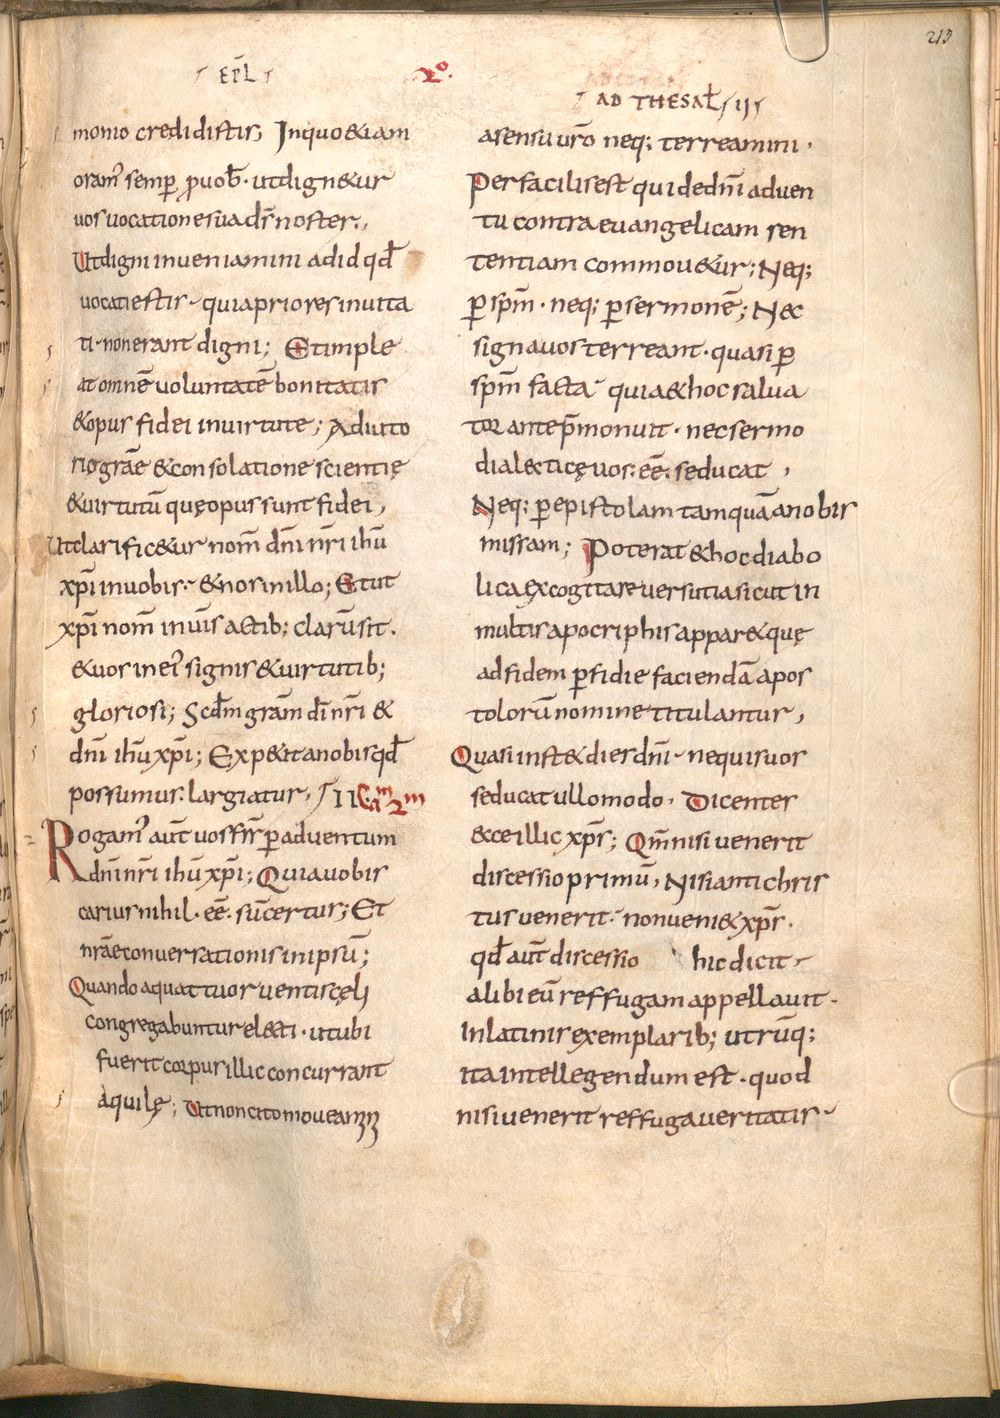 213
EPĪL
2º
AD THESAL II
monio credidistis; In quo & iam
oramꝰ semp̱ ꝓ uob̄· ut dign&ur
uos uocatione sua d̄s noster.,
Ut digni inueniamini ad id qd̄
uocati estis· quia priores inuita
ti· non erant digni; Et imple
at omnē uoluntatē bonitatis
& opus fidei in uirtute; Adiuto
rio grāe & consolatione scientię
& uirtutū quę opus sunt fidei,
Ut clarific&ur nom̄ dn̄i nr̄i ihū
xp̄i in uobis· & nos in illo; Et ut
xp̄i nom̄ in uīs actib; clarū sit.
& uos in eiꝰ signis & uirtutib;
gloriosi; Scd̄m gram̄ dī nr̄i &
dn̄i ihū xp̄i; Exp&it a nobis qd̄
possumus: largiatur, II Cam 2m
Rogamꝰ aut̄ uos fr̄s ꝑ aduentum
dn̄i nr̄i ihū xp̄i; Quia uobis
carius nihil· eē· sū certus; Et
nrāe conuersationis in ipsū;
Quando a quattuor uentis cęli
congregabuntur electi· ut ubi
fuerit corpus illic concurrant
aquilę; Ut non cito moueamini
a sensu ur̄o neq; terreamini·
Per facilis est qui de dn̄i aduen
tu contra euangelicam sen
tentiam commou&ur; Neq;
ꝑ sp̄m· neq; ꝑ sermonē; Nec
signa uos terreant· quasi ꝑ
sp̄m facta· quia & hoc salua
tor ante p̄monuit· nec sermo
dialecticę uos· eē· seducat,
Neq; ꝑ epistolam tamquā a nobis
missam; Poterat & hoc diabo
lica excogitare uersutia sicut in
multis apocriphis appar& quę
ad fidem ꝑfidie faciendā apos
tolorū nomine titulantur,
Quasi inst& dies dn̄i· nequis uos
seducat ullo modo· Dicentes
ecce illic xp̄s; Qm̄ nisi uenerit
discessio primū, Nisi antichris
tus uenerit· non ueni& xp̄s·
qd̄ aut̄ discessio hic dicit·
alibi eū reffugam appellauit·
In latinis exemplarib; utrūq;
ita intellegendum est· quod
nisi uenerit reffuga ueritatis·